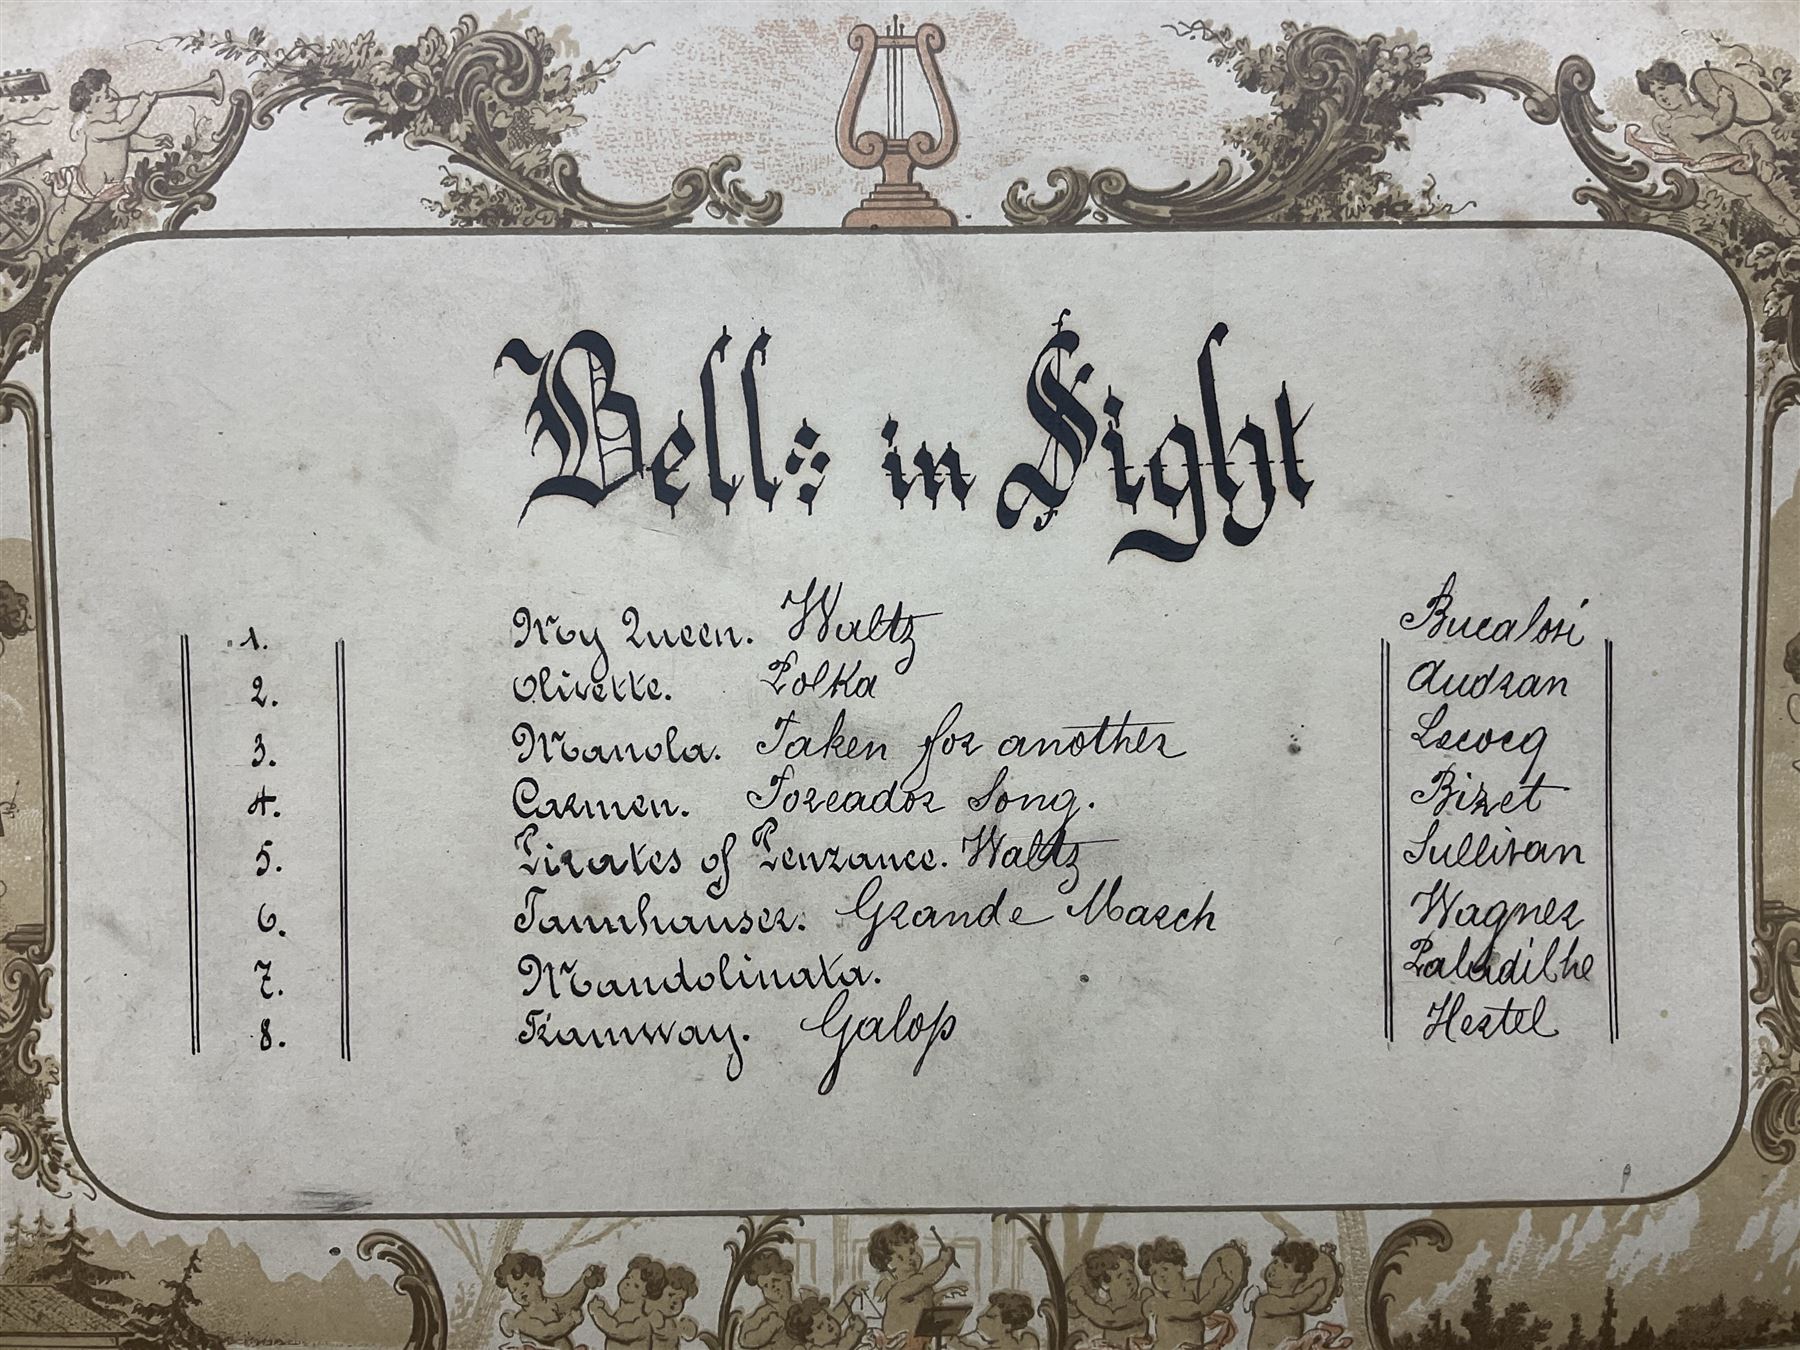 Bells in Sight
1. My Queen. Waltz Bucalosi
2. Olivette. Polka Audran
3. Manola. Taken for another Lecocq
4. Carmen. Toreador Song. Bizet
5. Pirates of Penzance. Waltz Sullivan
6. Tannhauser. Grande March Wagner
7. Mandolinata. Paladilhe
8. Tramway. Galop Hertel